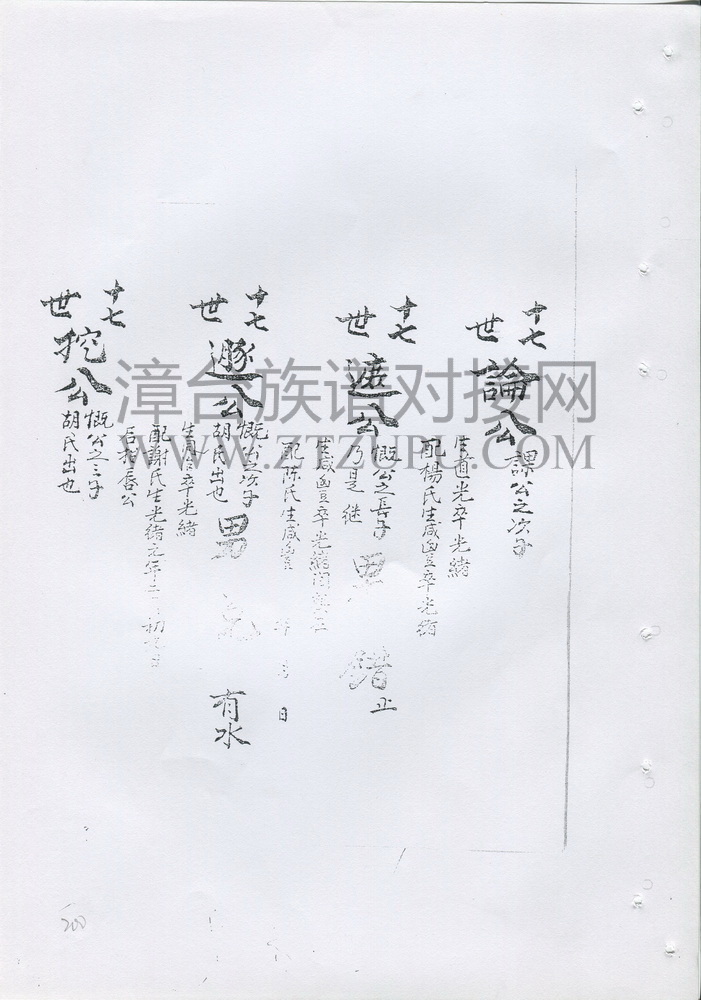 十七世
論公
課公之次子
生道光卒光緒
配楊氏生咸豊卒光緒
十七世
遮公
慨公之長子
乃是继
男
錯
止
生咸豊卒光緒
配陈氏生咸豊
年 月 日
十七世
公
慨公之次子
胡氏出也
男
有水
生咸豊卒光緒
配謝氏生光緒元年十二月初
后
公
十七世
挖公
慨公之三子
胡氏出也
漳台族谱对接网
WWW.ZTZUPU.COM
200